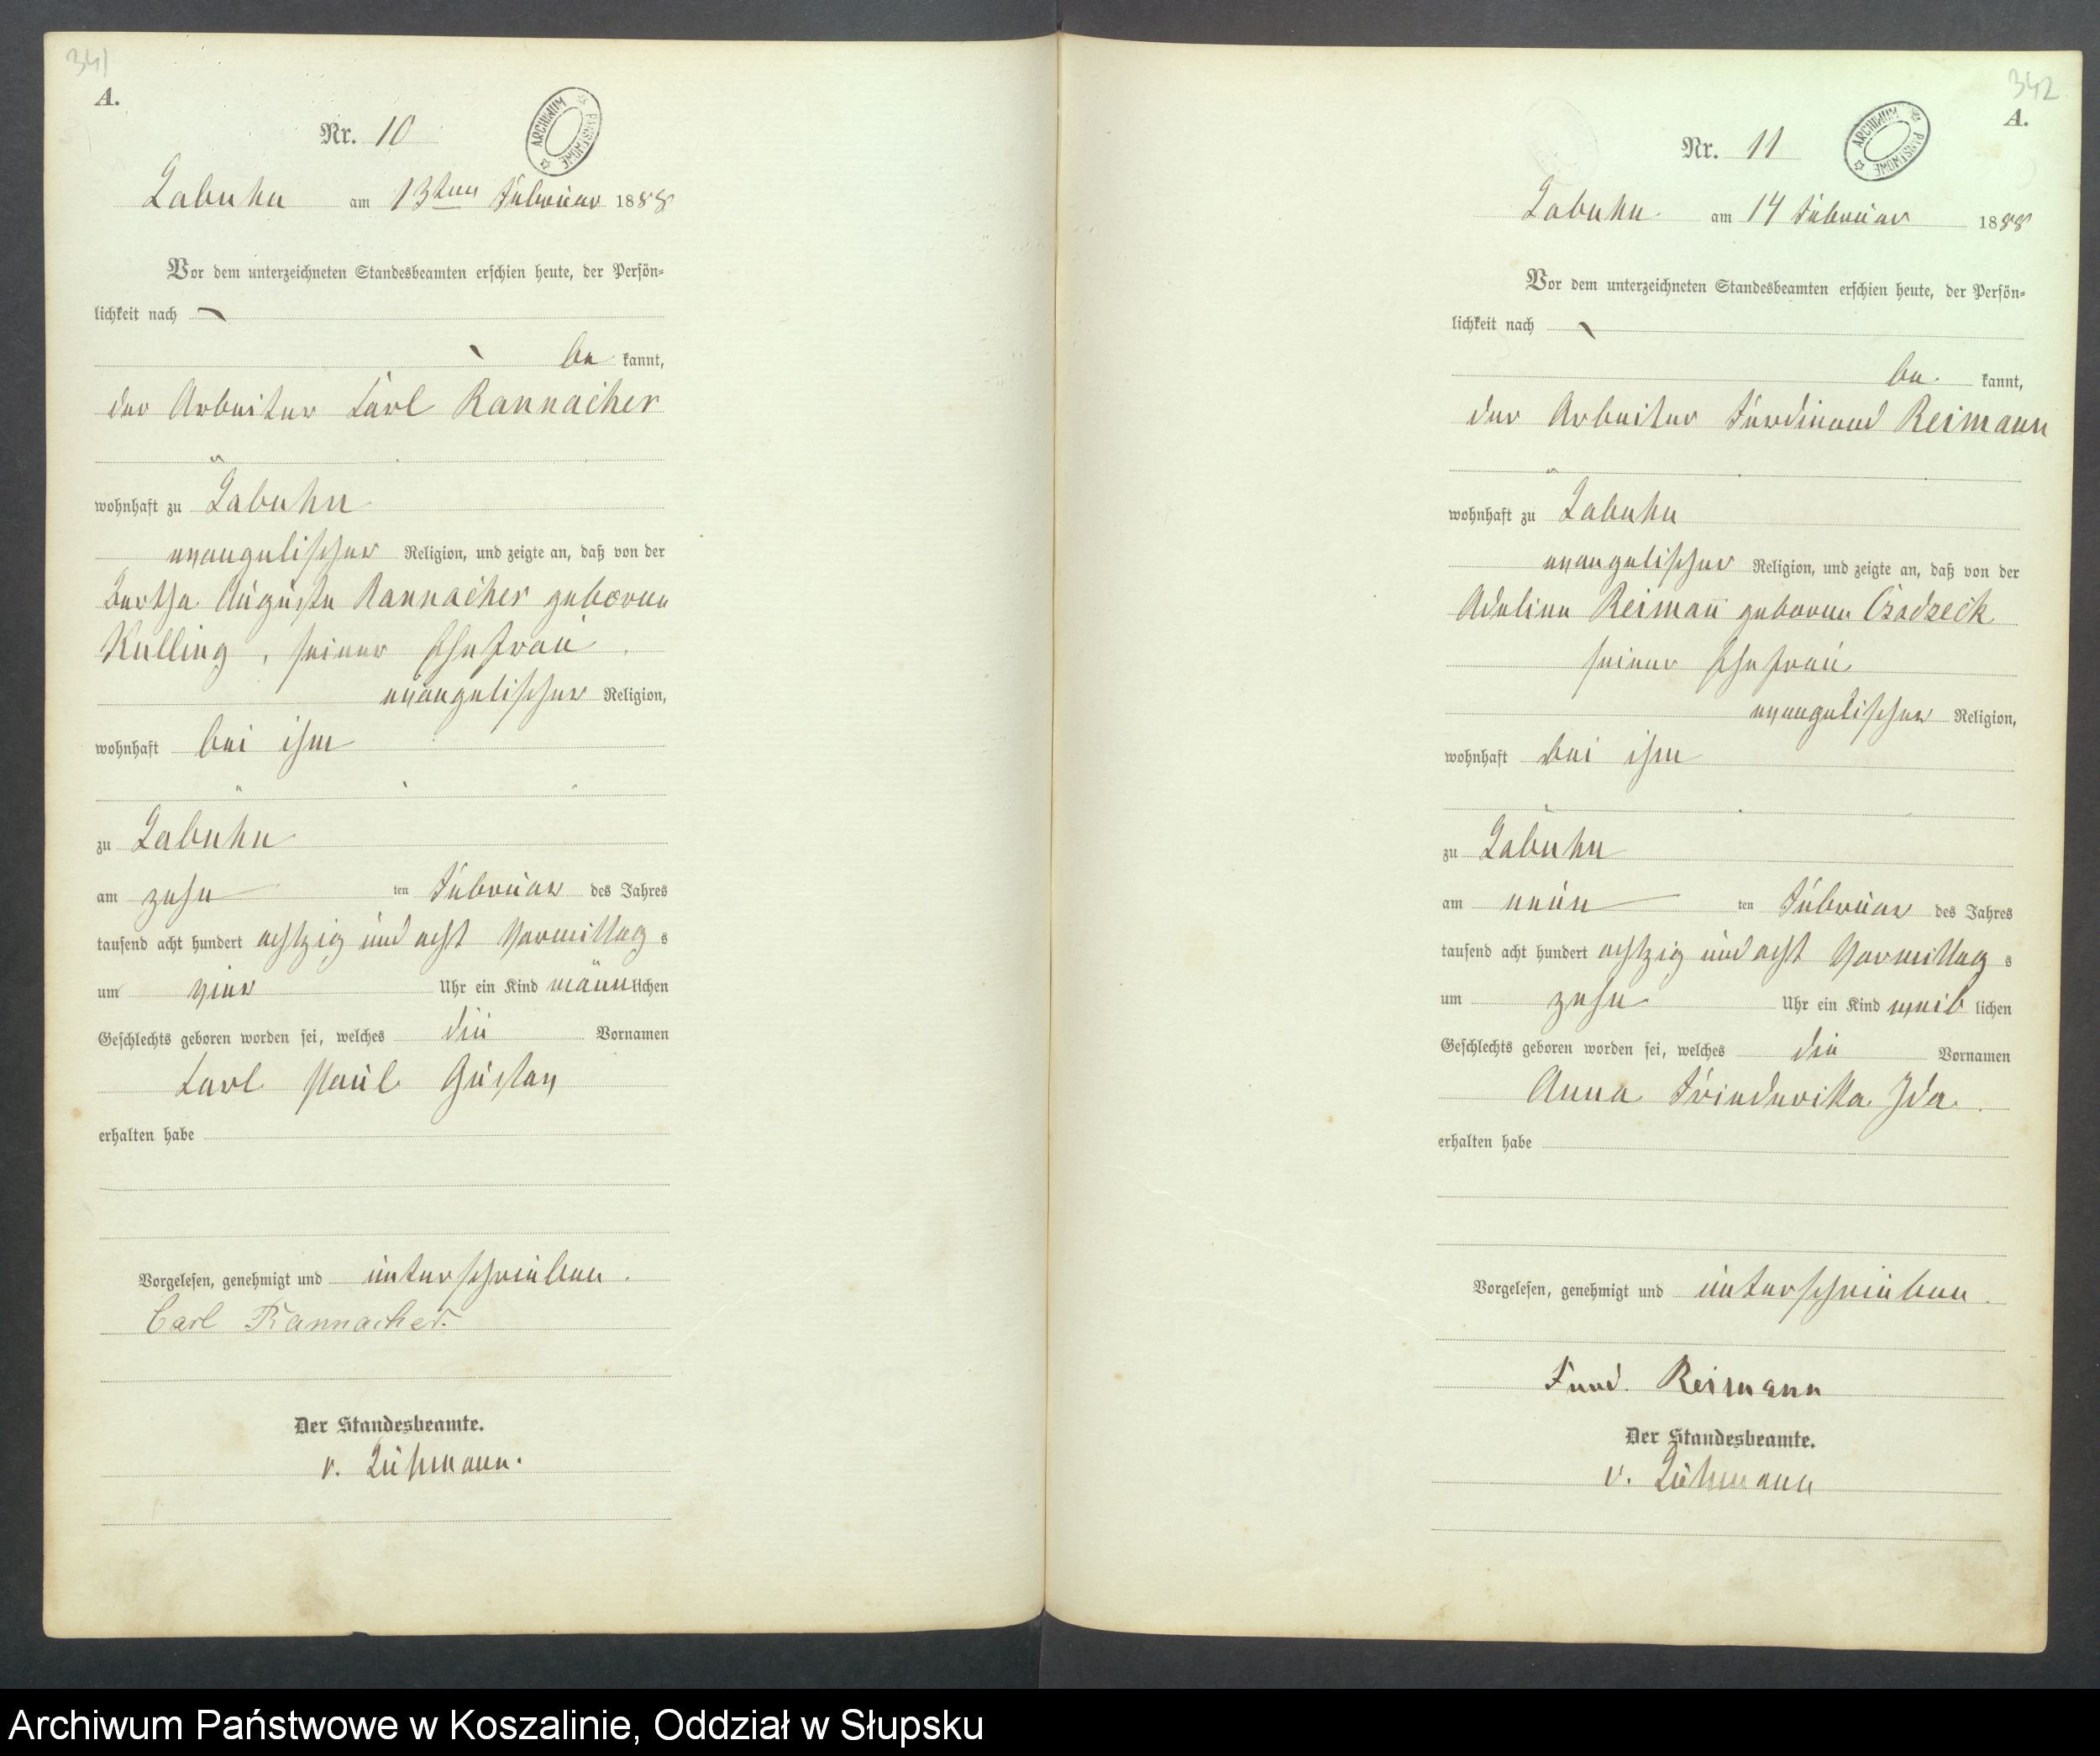 341
A.
Nr. 10
ARCHIWUM PAŃSTWOWE
Labuhn am 13ten Februar 1888
Vor dem unterzeichneten Standesbeamten erschien heute, der Persön-
lichkeit nach
be kannt,
der Arbeiter Carl Rannacher
wohnhaft zu Labuhn
evangelischer Religion, und zeigte an, daß von der
Bertha Auguste Rannacher geborene
Kulling, seiner Ehefrau
evangelischer Religion,
wohnhaft bei ihm
zu Labuhn
am zehn ten Februar des Jahres
tausend acht hundert achtzig und acht Vormittag s
um vier Uhr ein Kind männlichen
Geschlechts geboren worden sei, welches die Vornamen
Carl Paul Gustav
erhalten habe
Vorgelesen, genehmigt und unterschrieben.
Carl Rannacher.
Der Standesbeamte.
342
A.
Nr. 11
ARCHIWUM PAŃSTWOWE
Labuhn am 14 Februar 1888
Vor dem unterzeichneten Standesbeamten erschien heute, der Persön-
lichkeit nach
be kannt,
der Arbeiter Ferdinand Reimann
wohnhaft zu Labuhn
evangelischer Religion, und zeigte an, daß von der
Adeline Reiman̄ geborene
seiner Ehefrau
evangelischer Religion,
wohnhaft bei ihm
zu Labuhn
am neun ten Februar des Jahres
tausend acht hundert achtzig und acht Vormittag s
um zehn Uhr ein Kind weib lichen
Geschlechts geboren worden sei, welches die Vornamen
Anna Friederika Ida
erhalten habe
Vorgelesen, genehmigt und unterschrieben.
Reimann
Der Standesbeamte.
Archiwum Państwowe w Koszalinie, Oddział w Słupsku